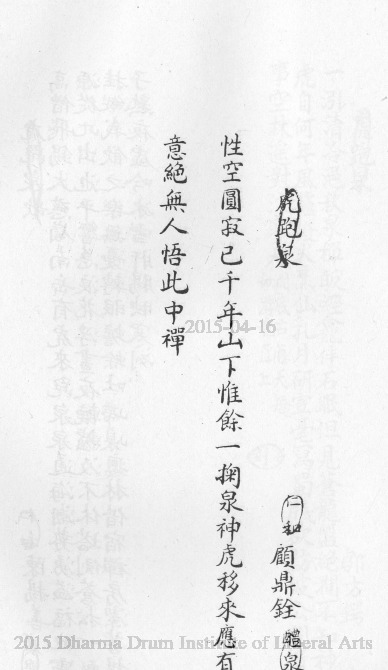 虎跑泉
仁和 顧鼎銓 醴泉
性空圓寂已千年山下惟餘一掬泉神虎移來應有
意絕無人悟此中禪
2015-04-16
2015 Dharma Drum Institute of Liberal Arts